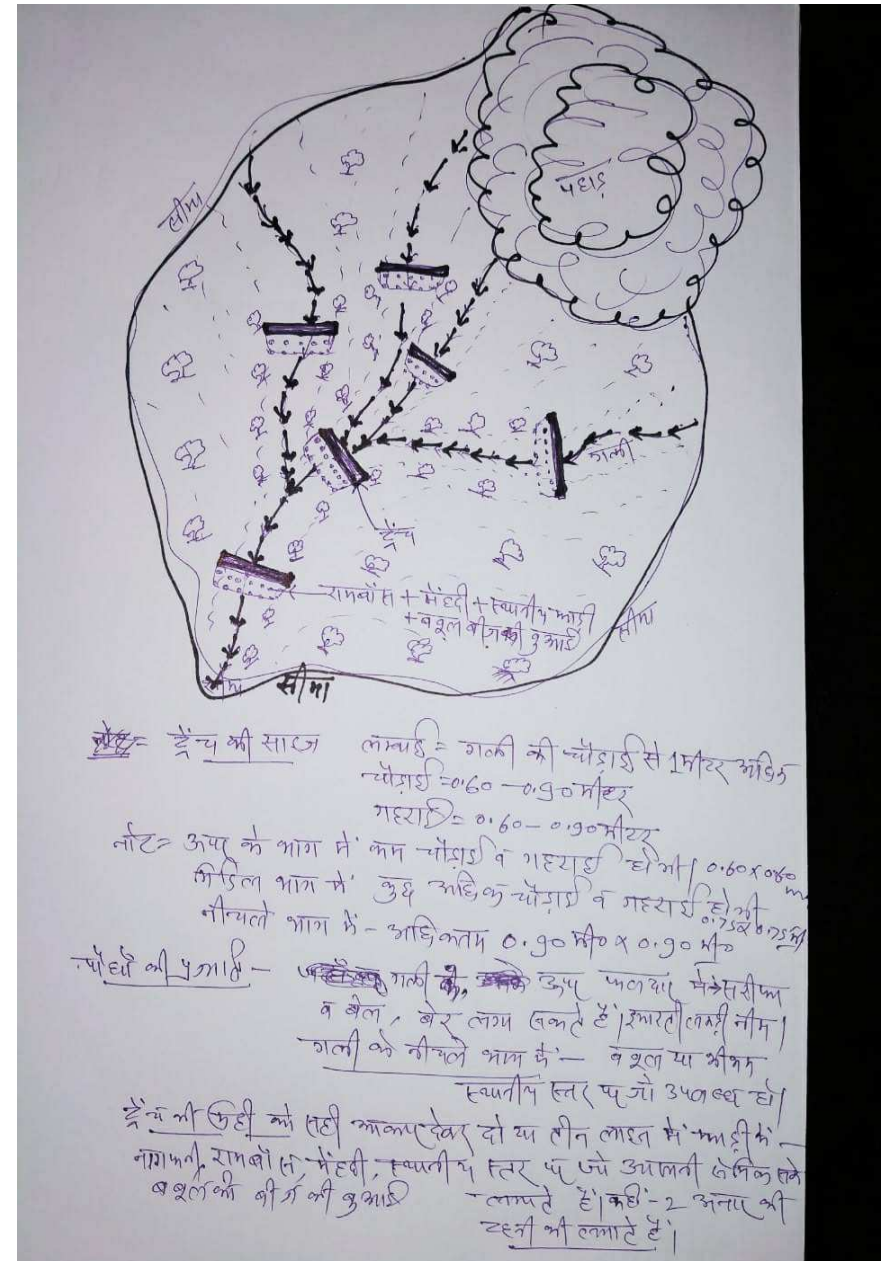 पहाड़
सीमा
गली
ट्रैंच
रामबाँस + मेंहदी + स्थानीय झाड़ी
+ बबूल बीज की बुआई
सीमा
सीमा
सीमा
नोट = ट्रैंच की साइज लम्बाई = गली की चौड़ाई से 1 मीटर अधिक
चौड़ाई = 0.60 - 0.90 मीटर
गहराई = 0.60 - 0.90 मीटर
नोट = ऊपर के भाग में कम चौड़ाई व गहराई होगी। 0.60 x 0.60 m
मिडिल भाग में कुछ अधिक चौड़ाई व गहराई होगी 0.75 x 0.75 मी
नीचले भाग में - अधिकतम 0.90 मी० x 0.90 मी०
पौधों की प्रजाति - गली के ऊपर फलदार सरीफा
व बेल, बेर लगा सकते हैं। इमारती लकड़ी नीम।
गली के नीचले भाग में - बबूल या
स्थानीय स्तर पर जो उपलब्ध हो।
ट्रैंच की मिट्टी को सही आकार देकर दो या तीन लाइन में झाड़ी में -
नागफनी, रामबाँस, मेंहदी, स्थानीय स्तर पर जो आसानी से मिल सके
बबूल की बीज की बुआई लगाते हैं। कहीं-2 अनार की
टहनी भी लगाते हैं।